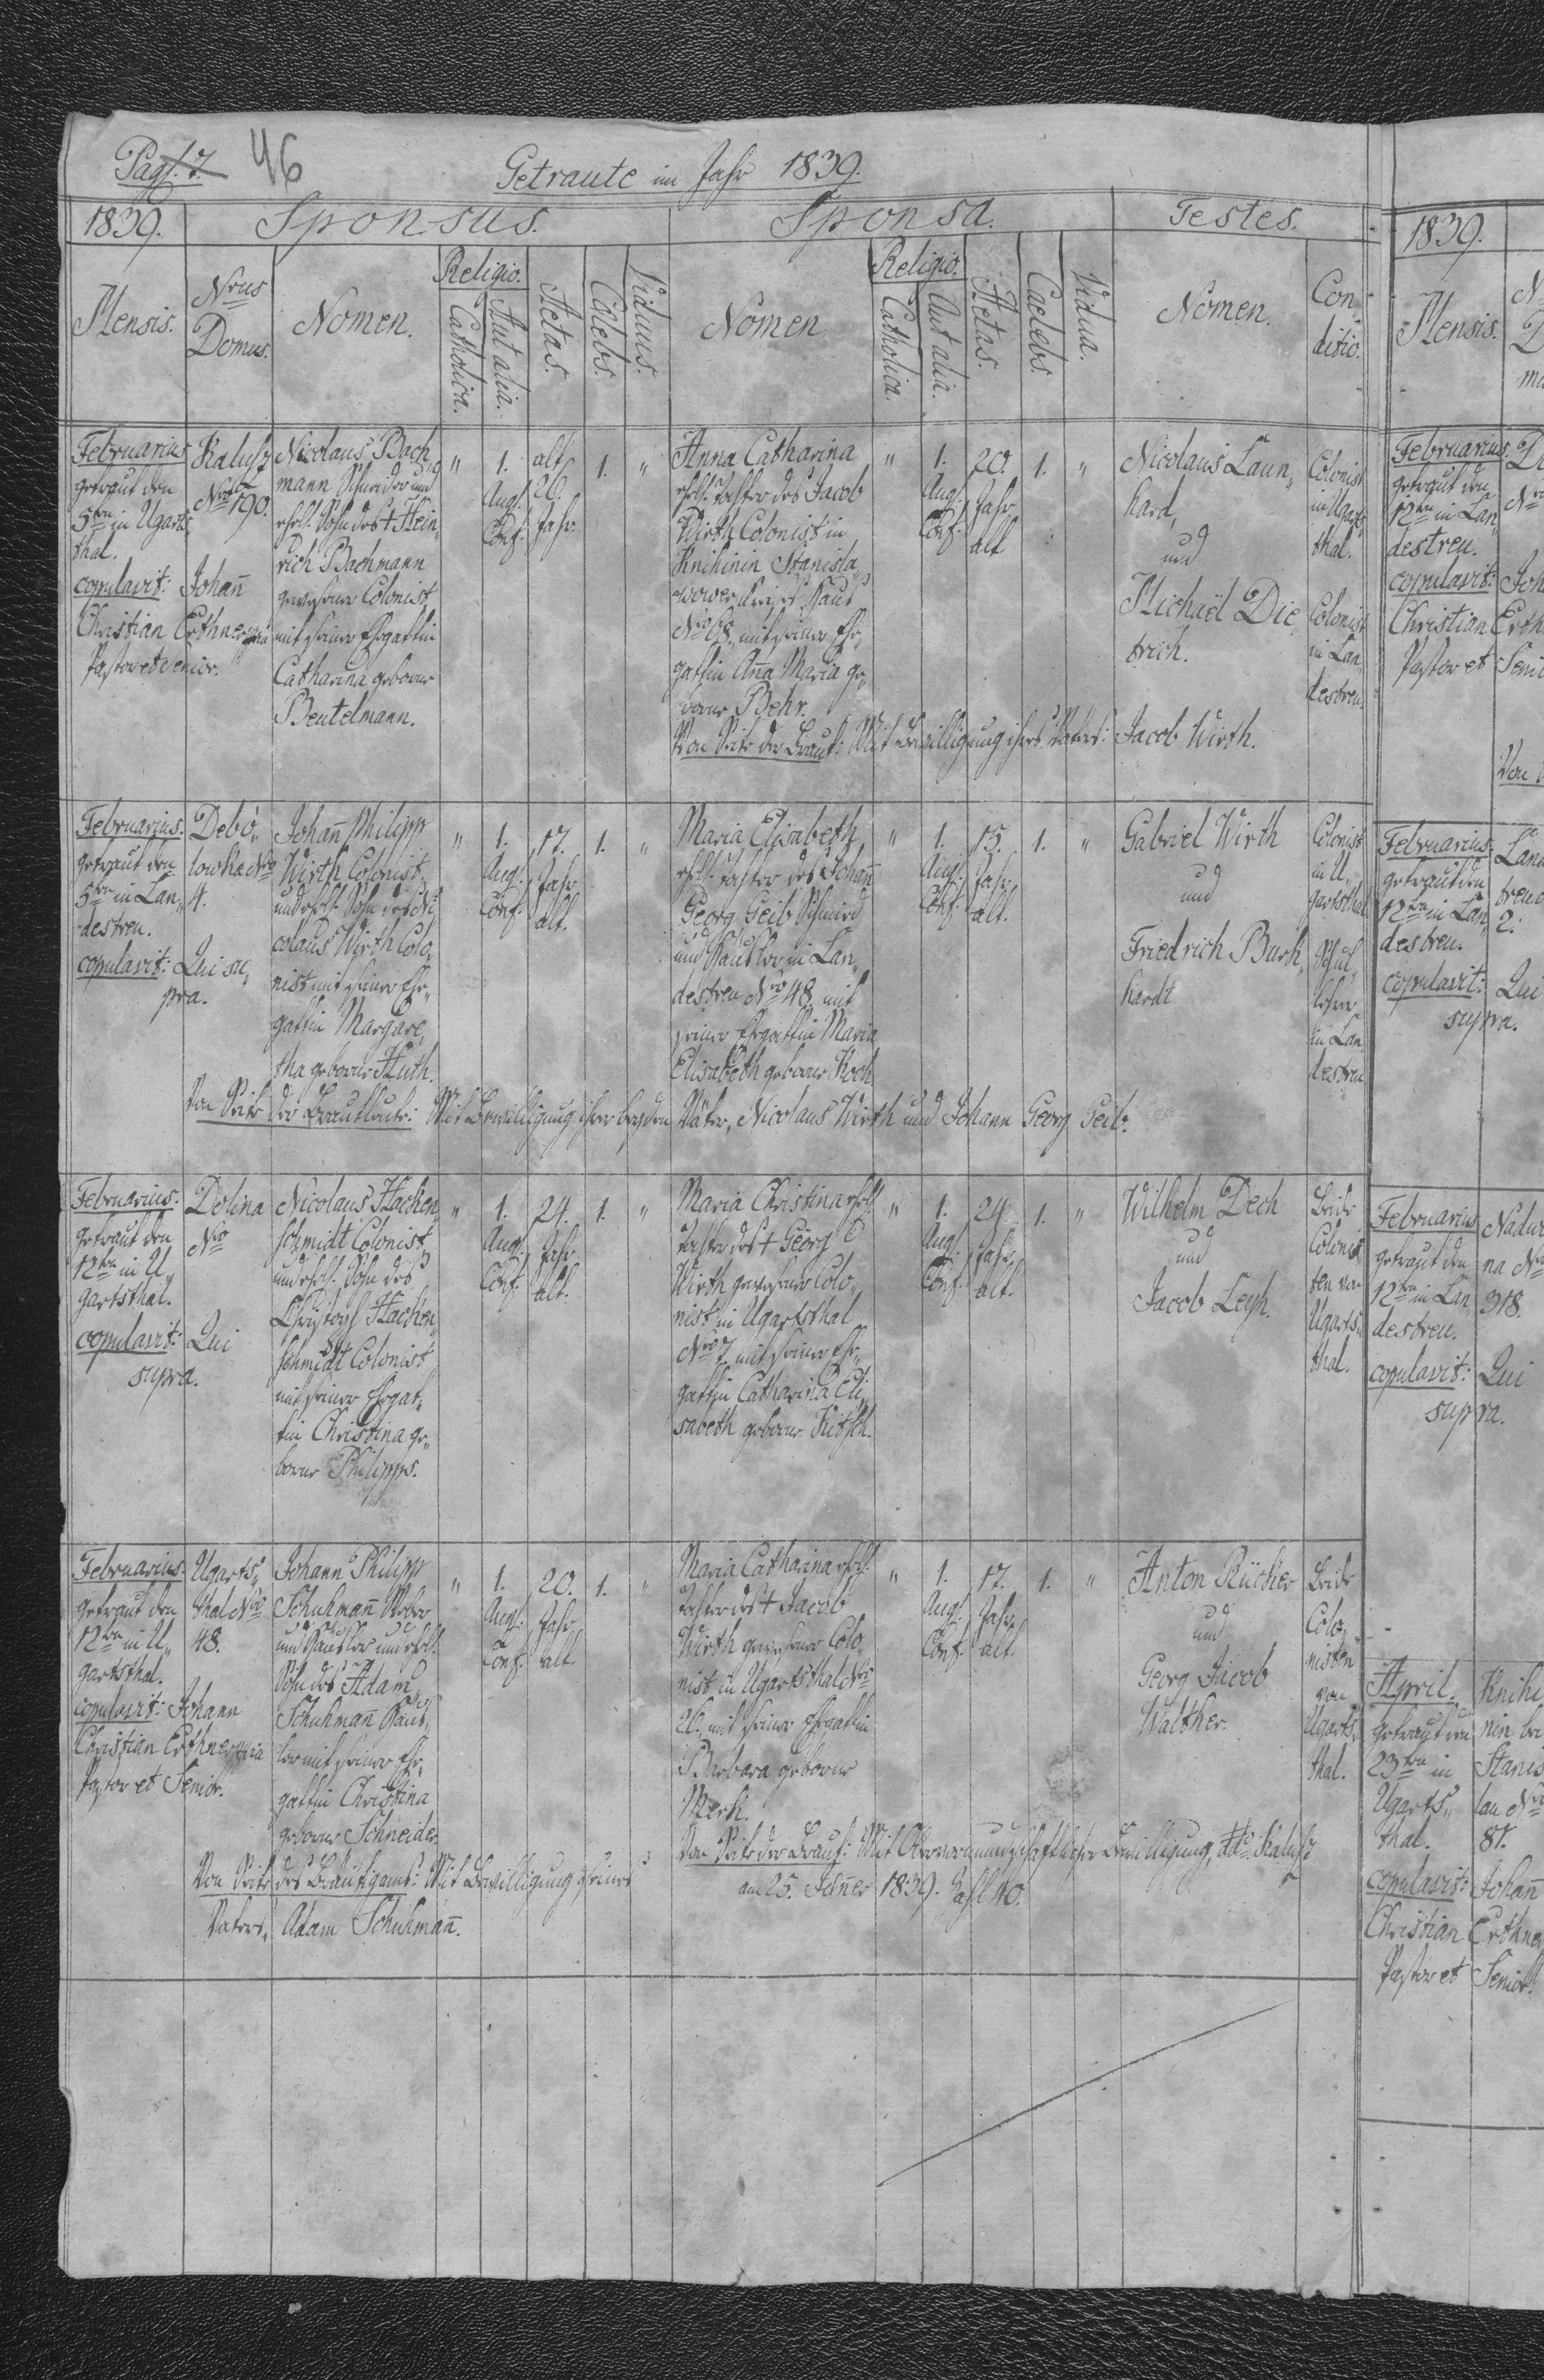 Pag. 7. 46
Getraute im Jahr 1839.
1839. Sponsus. Sponsa. Testes.
Mensis. Nrus Domus. Nomen. Religio. Catholica. Aut alia. Aetas. Caelebs. Viduus. Nomen Religio. Catholica. Aut alia. Aetas. Caelebs. Vidua. Nomen. Con„ ditio.
Februarius
getraut den
5ten in Ugarts„
thal.
copulavit: Johañ
Christian Erthner
Pastor et Senior.
Kalusz
Nro 190.
Nicolaus Bach„
mann Schneider und
ehel. Sohn des † Hein„
rich Bachmann
gewesener Colonist
mit seiner Ehegattin
Catharina geborne
Beutelmann.
"
1.
Augs.
Conf.
alt
26.
Jahr
1.
"
Anna Catharina
ehel. Tochter des Jacob
Wirth Colonist in
Knihinin Stanisla„
wower Kreises Haus
Nro 68. mit seiner Ehe„
gattin Aña Maria ge„
borne Behr.
"
1.
Augs.
Conf.
20.
Jahr
alt
1.
"
Nicolaus Laun„
hard,
und
Michaël Die„
trich.
Colonist
in Ugarts„
thal.
Colonist
in Lan„
destreu.
Von Seite der Braut: Mit Bewilligung ihres Vaters: Jacob Wirth.
Februarius.
getraut den
5ten in Lan„
destreu.
copulavit: Qui su„
pra.
Debo„
lowka Nro
4.
Johañ Philipp
Wirth Colonist
und ehel. Sohn des Ni„
colaus Wirth Colo„
nist mit seiner Ehe„
gattin Margare„
tha geborne Huth.
"
1.
Augs.
Conf.
17.
Jahr
alt.
1.
"
Maria Elisabeth
ehel. Tochter des Johañ
Georg Geib Schmied
und Häusler in Lan„
destreu Nro 48. mit
seiner Ehegattin Maria
Elisabeth geborne Koch
"
1.
Augs.
Conf.
15.
Jahr
alt.
1.
"
Gabriel Wirth
und
Friedrich Burk„
hardt
Colonist
in U„
gartsthal.
Schul„
lehrer
in Lan„
destreu
Von Seite der Brautleute: Mit Bewilligung ihrer beyden Väter, Nicolaus Wirth und Johann Georg Geib.
Februarius.
getraut den
12ten in U„
gartsthal.
copulavit: Qui
supra.
Dolina
Nro
Nicolaus Hacken„
schmidt Colonist
und ehel. Sohn des
Christoph Hacken„
schmidt Colonist
mit seiner Ehegat„
tin Christina ge„
borne Philipps.
"
1.
Augs.
Conf.
24.
Jahr
alt.
1.
"
Maria Christina ehel.
Tochter des † Georg
Wirth gewesener Colo„
nist in Ugartsthal
Nro 7. mit seiner Ehe„
gattin Catharina Eli„
sabeth geborne
"
1.
Augs.
Conf.
24.
Jahr
alt.
1.
"
Wilhelm Dech
und
Jacob Leyh.
Beide
Colonis„
ten von
Ugarts„
thal.
Februarius
getraut den
12ten in U„
gartsthal.
copulavit: Johann
Christian Erthner
Pastor et Senior.
Ugarts„
thal Nro
48.
Johann Philipp
Schuhmañ Weber
und Häusler und ehel.
Sohn des Adam
Schuhmañ Häus„
ler mit seiner Ehe„
gattin Christina
geborne Schneider.
"
1.
Augs.
Conf.
20.
Jahr
alt.
1.
"
Maria Catharina ehel.
Tochter des † Jacob
Wirth gewesener Colo„
nist in Ugartsthal Nro
26. mit seiner Ehegattin
Barbara geborne
Merk.
"
1.
Augs.
Conf.
17.
Jahr
alt.
1.
"
Anton Rücker
und
Georg Jacob
Walther.
Beide
Colo„
nisten
von
Ugarts„
thal.
Von Seite des Bräutigams: Mit Bewilligung seines
Vaters, Adam Schuhmañ.
Von Seite der Braut: Mit Obervormundschaftlicher Bewilligung, dto. Kalusz
am 25. Jeñer 1839. Zahl 10.
1839.
Mensis.
Februarius.
getraut den
12ten in Lan„
destreu.
copulavit: Joh
Christian Erth
Pastor et Senio
Von
Februarius.
getraut den
12ten in Lan„
destreu.
copulavit: Qui
supra.
Land
treu
2.
Februarius
getraut den
12ten in Lan„
destreu.
copulavit: Qui
supra.
Nadur
na Nro
318.
April.
getraut den
23ten in
Ugarts„
thal.
copulavit: Johañ
Christian Erthner
Pastor et Senior.
Knihi
nin bei
Stanis
lau Nro
81.